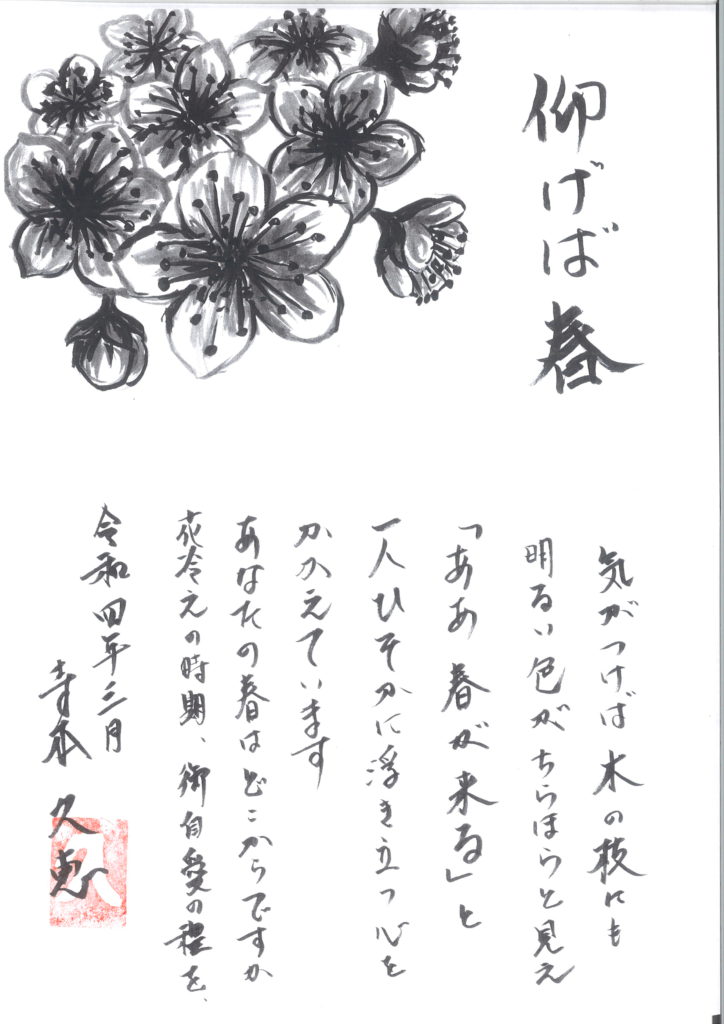 仰げば春
気がつけば木の枝にも
明るい色がちらほらと見え
「ああ 春が来る」と
一人ひそかに浮き立つ心を
かかえています
あなたの春はどこからですか
花冷えの時期、御自愛の程を、
令和四年三月
寺本 久恵
久